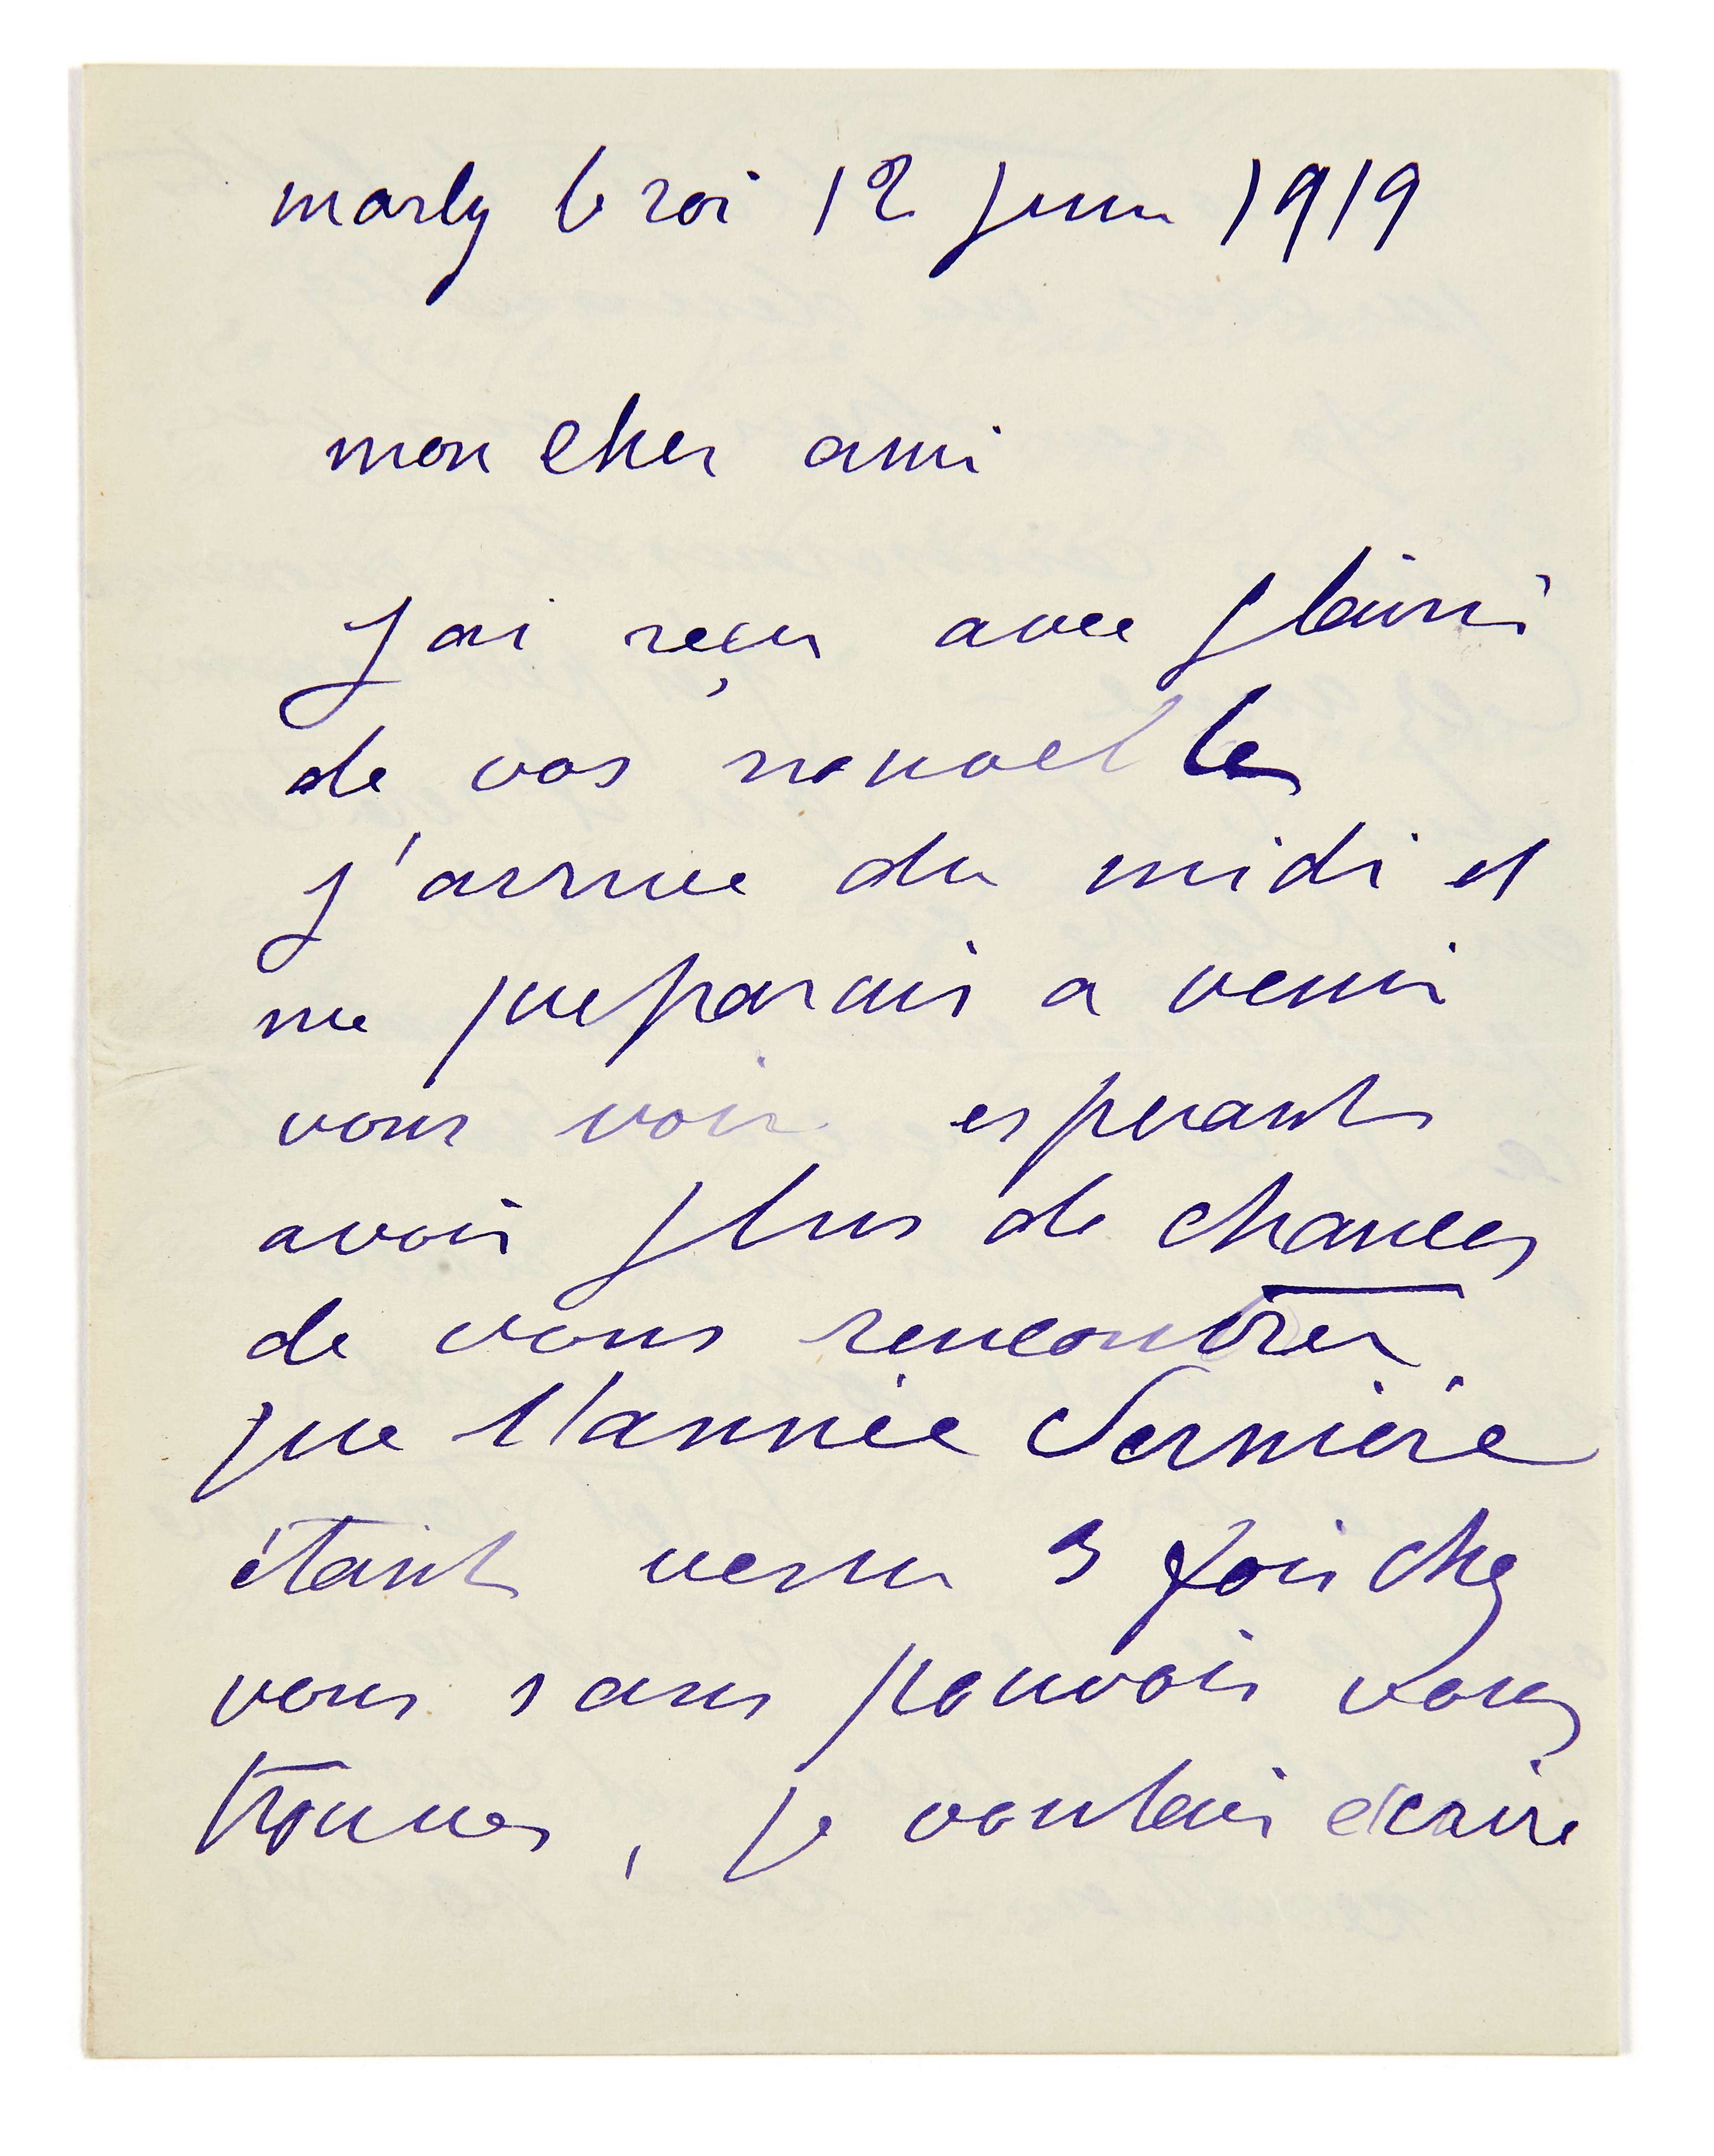 marly le roi 12 juin 1919
mon cher ami
J ai reçu avec plaisir
de vos nouvelles
j'arrive du midi et
me preparais a venir
vous voir esperant
avoir plus de chances
de vous rencontrer
que l'année dernière
étant venu 3 fois chez
vous sans pouvoir vous
trouver, je voulais écrire